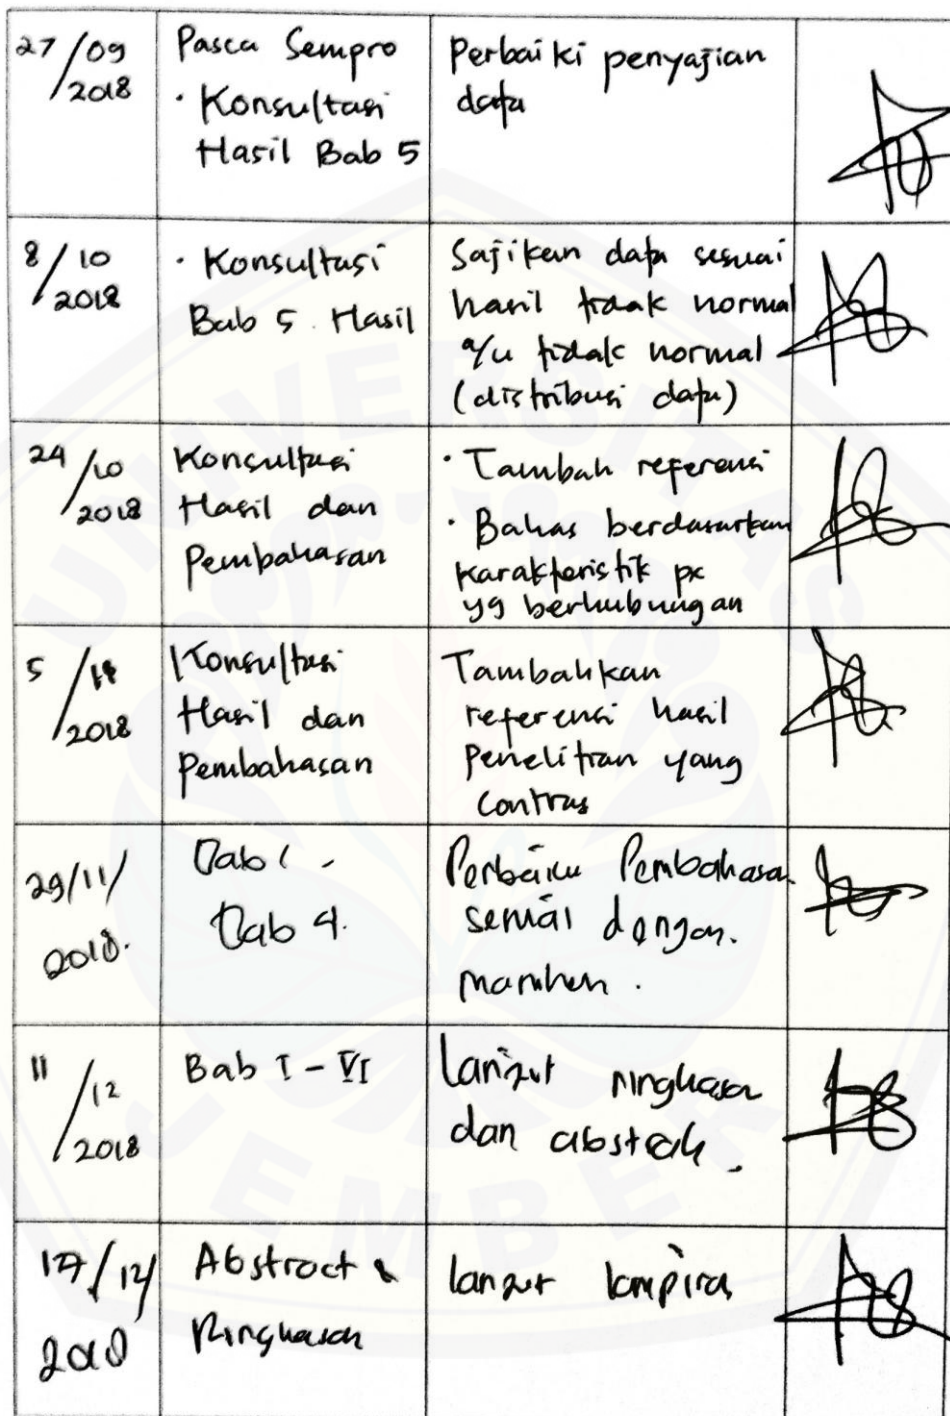 27/09
2018
Pasca Sempro
· Konsultasi
Hasil Bab 5
Perbaiki penyajian
data
8/10
2018
· Konsultasi
Bab 5. Hasil
Sajikan data sesuai
hasil tidak normal
a/u tidak normal
(distribusi data)
24/10
2018
Konsultasi
Hasil dan
Pembahasan
· Tambah referensi
· Bahas berdasarkan
karakteristik px
yg berhubungan
5/11
2018
Konsultasi
Hasil dan
pembahasan
Tambahkan
referensi hasil
penelitian yang
contras
29/11/
2018.
Bab 1 -
Bab 4.
Perbaiki Pembahasan
sesuai dengan.
11/12
2018
Bab I - VI
lanjut ringkasan
dan abstrak.
17/12/
2018
Abstract &
Ringkasan
lanjut lampiran
UNIVERSITAS
JEMBER